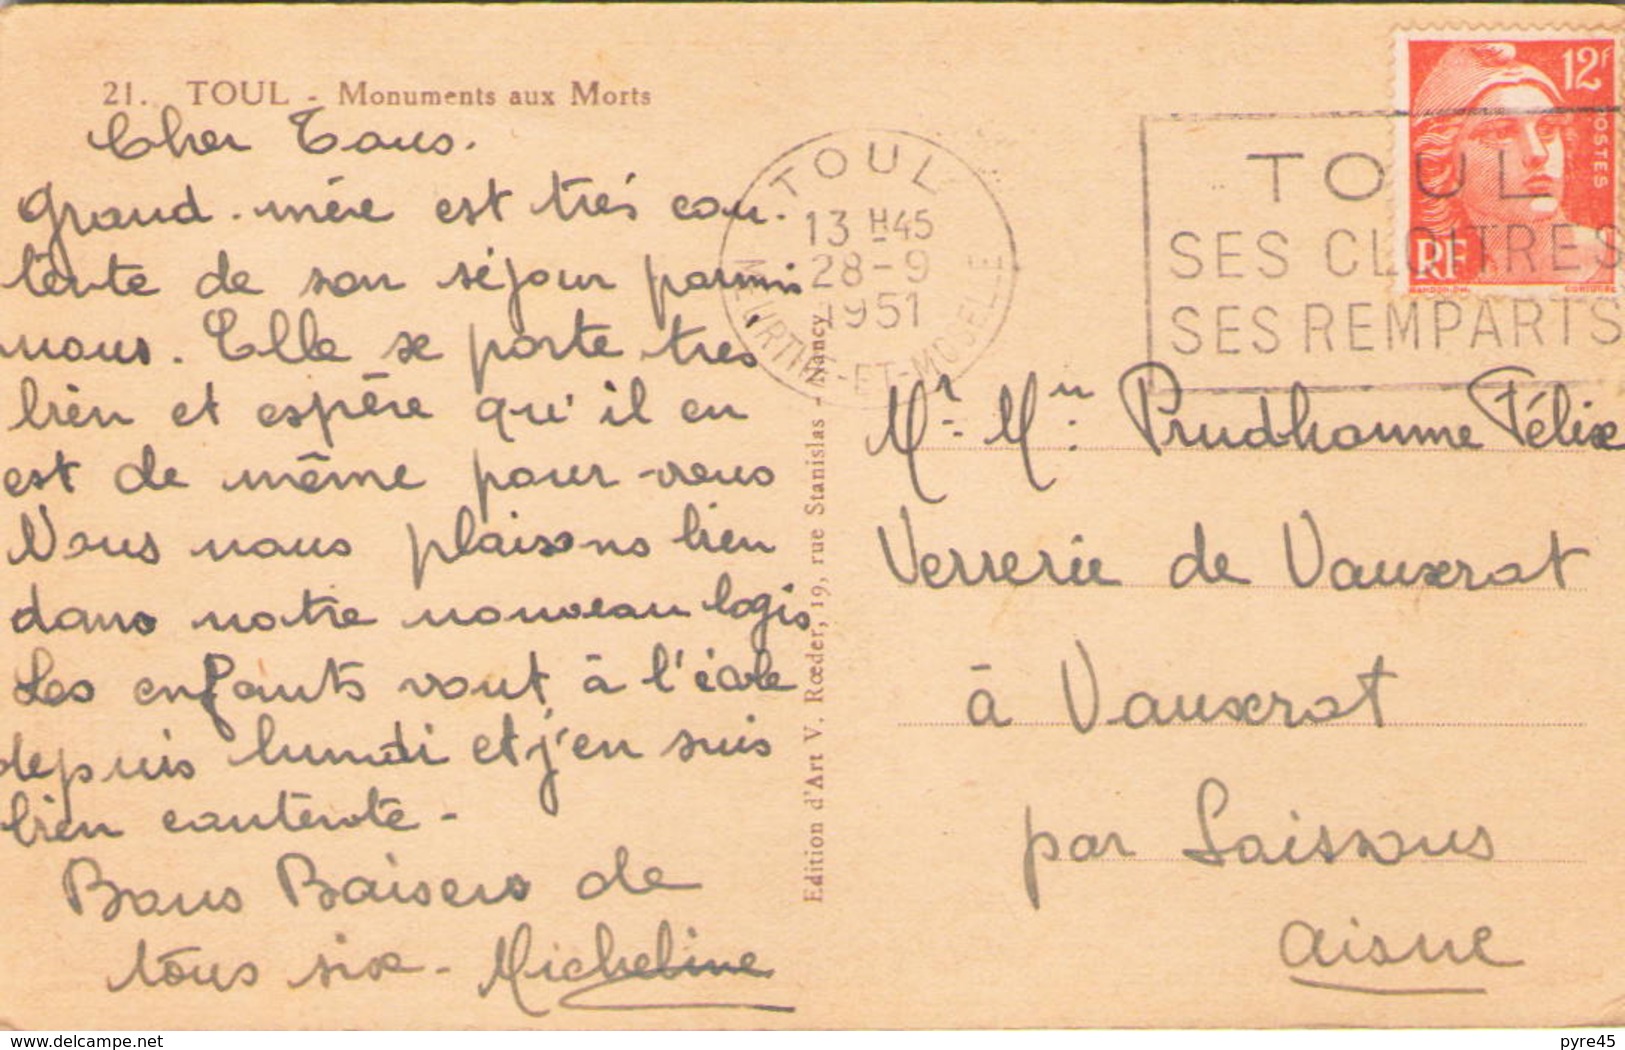 21. TOUL - Monuments aux Morts
Cher Tous.
Grand-mère est très con-
tente de son séjour parmi
nous. Elle se porte très
bien et espère qu'il en
est de même pour vous
Nous nous plaisons bien
dans notre nouveau logis
Les enfants vont à l'école
depuis lundi et j'en suis
bien contente -
Bons Baisers de
tous six - Micheline
Edition d'Art V. Rœder, 19, rue Stanislas - Nancy
TOUL
13 H 45
28-9
1951
MEURTHE-ET-MOSELLE
TOUL
SES CLOITRES
SES REMPARTS
12F
POSTES
RF
Mr. Mn: Prudhomme Félix
Verrerie de Vauxrot
à Vauxrot
par Soissons
Aisne
delcampe.net
pyre45